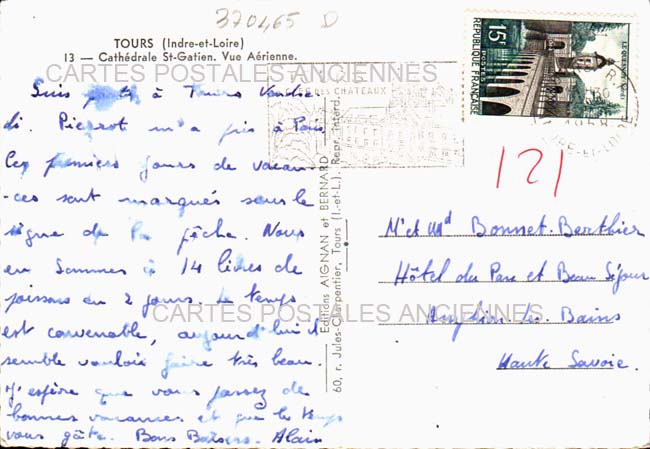 370465 D
TOURS (Indre-et-Loire)
13 — Cathédrale St-Gatien. Vue Aérienne.
CARTES POSTALES ANCIENNES
Suis à Tours Vendre-
di. Pierrot m'a pris à Paris
Les premiers jours de vacan-
-ces sont marqués sous le
signe de la pêche. Nous
en sommes à 14 livres de
poissons en 2 jours. Le temps
est convenable, aujourd'hui il
semble vouloir faire très beau.
J'espère que vous passez de
bonnes vacances et que le temps
vous gâte. Bons Baisers. Alain
Editions AIGNAN et BERNARD
60, r. Jules-Charpentier, Tours (I.-et-L.). Repr. interd.
CHÂTEAUX
15F
POSTES
REPUBLIQUE FRANÇAISE
LE QUESNOY
1958
121
Mr et Md Bonnet-Berthier
Hôtel du Parc et Beau Séjour
les Bains
Haute Savoie.
CARTES POSTALES ANCIENNES